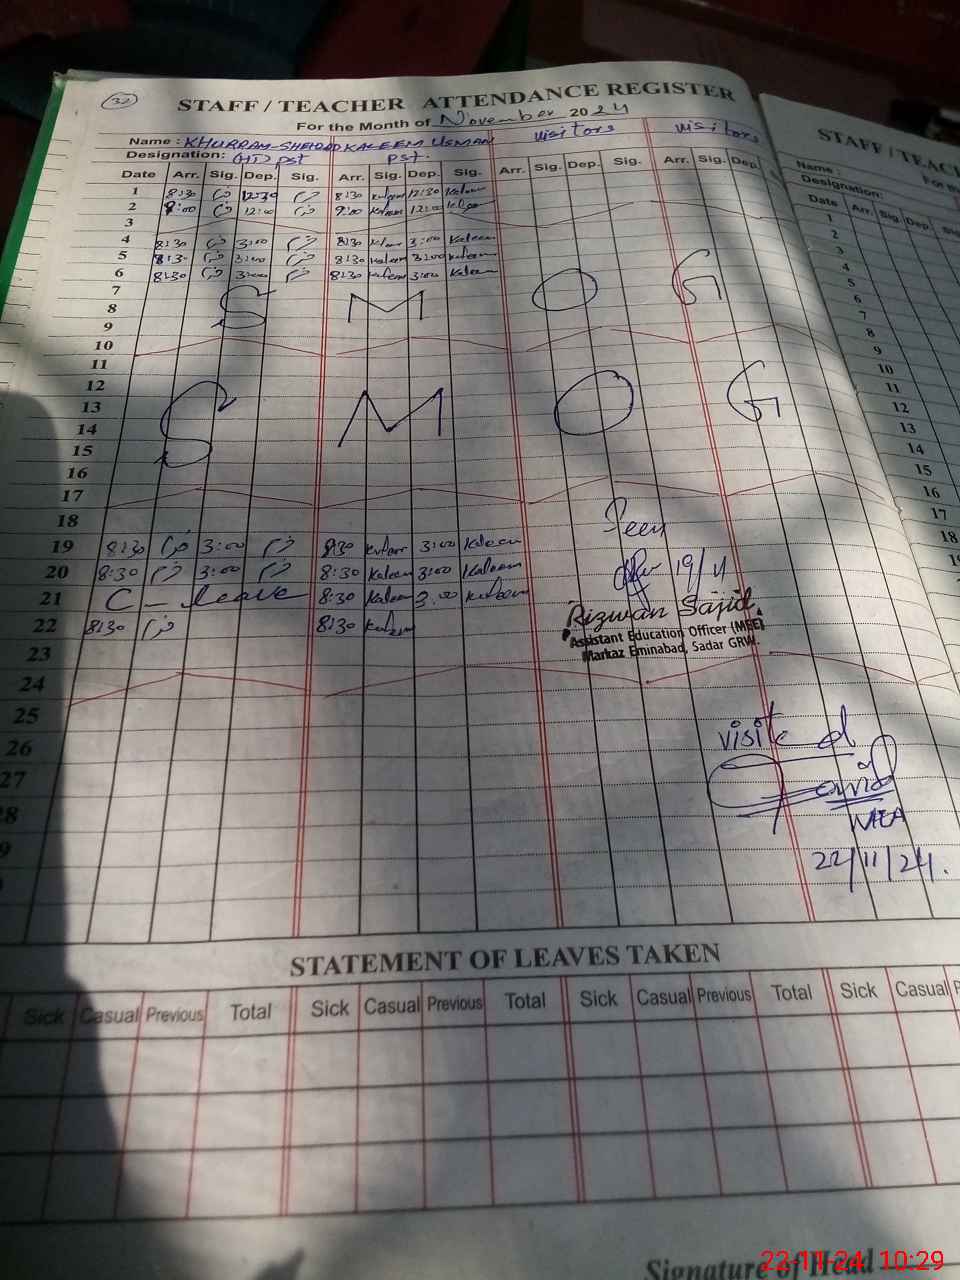 32
STAFF / TEACHER ATTENDANCE REGISTER
For the Month of November 2024
Name : KHURRAM-SHEHZAD KALEEM USMAN visitors visitors
Designation: (HT) pst pst.
Date Arr. Sig. Dep. Sig. Arr. Sig. Dep. Sig. Arr. Sig. Dep. Sig. Arr. Sig. Dep.
1 8:30 12:30 8:30 Kaleem 12:30 Kaleem
2 9:00 12:00 9:00 Kaleem 12:00 Kaleem
3
4 8:30 3:00 8:30 Kaleem 3:00 Kaleem
5 8:30 3:00 8:30 Kaleem 3:00 Kaleem
6 8:30 3:00 8:30 Kaleem 3:00 Kaleem
7
8 S M O G
9
10
11
12
13 S M O G
14
15
16
17
18 Seen
19 8:30 3:00 8:30 Kaleem 3:00 Kaleem
20 8:30 3:00 8:30 Kaleem 3:00 Kaleem 19/11
21 C - leave 8:30 Kaleem 3:00 Kaleem Rizwan Sajid.
22 8:30 8:30 Kaleem Assistant Education Officer (MEE)
Markaz Eminabad, Sadar GRW.
23
24
25
26 visited
27 Javid
28 MEA
9 22/11/24.
STATEMENT OF LEAVES TAKEN
Sick Casual Previous Total Sick Casual Previous Total Sick Casual Previous Total Sick Casual P
Signature of Head
22-11-24 10:29
STAFF / TEAC
Name :
For th
Designation:
Date Arr. Sig. Dep. Sig
1
2
3
4
5
6
7
8
9
10
11
12
13
14
15
16
17
18
19
20